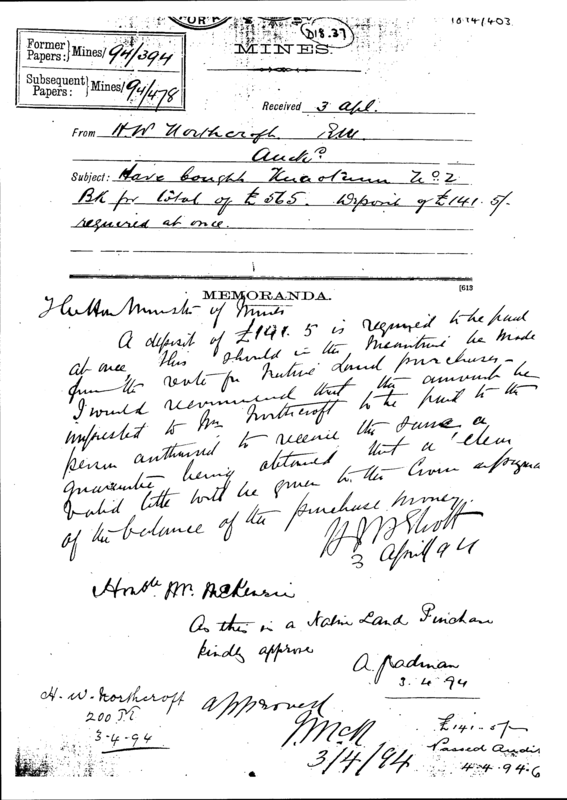 1894/403
D18.37
Former Papers: } Mines/ 94/394
Subsequent Papers: } Mines/ 94/478
MINES.
Received 3 Apl.
From H.W Northcroft R.M.
Auckd
Subject: Have bought No 2
BK for total of £565. Deposit of £141.5/-
required at once.
[613
MEMORANDA.
The Hon Minister of Mines
A deposit of £141.5 is required to be paid
at once this should in the meantime be made
from the vote for Native Land purchases –
I would recommend that the amount be
imprested to Mr Northcroft to be paid to the
person authorised to receive the same a
guarantee being obtained that a clear
valid title will be given to the Crown
of the balance of the purchase money.
H J H Eliott
3 April 94
Honble Mr. McKenzie
As this is a Native Land Purchase
kindly approve
A. J. Cadman
3.4.94
H. W. Northcroft
200
3-4-94
approved
J. McK
3/4/94
£141-5/-
Passed Audit
4.4.94